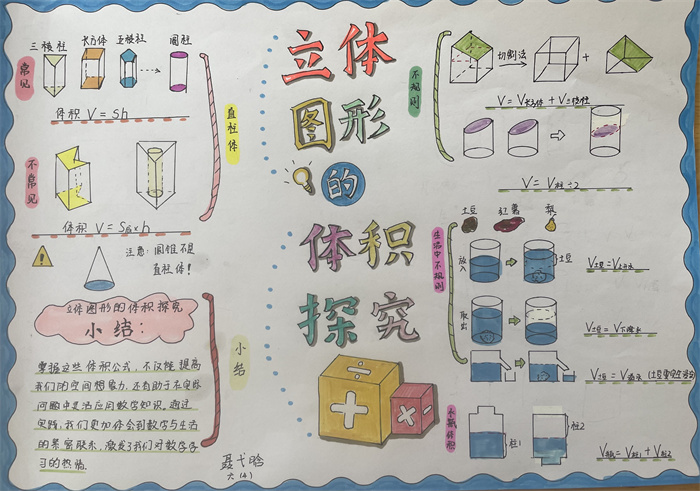 立体
图形
的
体积
探究
常见
三棱柱
长方体
五棱柱
圆柱
体积 V = Sh
直柱体
不常见
体积 V = S底×h
注意：圆锥不是
直柱体！
立体图形的体积探究
小结：
掌握这些体积公式，不仅能提高
我们的空间想象力，还有助于在实际
问题中灵活应用数学知识。通过
实践，我们更加体会到数学与生活
的紧密联系，激发了我们对数学学
习的热情。
小结
聂弋晗
六(4)
不规则
切割法
+
V = V长方体 + V三棱柱
V = V柱÷2
生活中不规则
土豆
红薯
梨
放入
土豆
V土豆=V上升水
取出
V土豆=V下降水
V土豆=V溢水
水瓶体积
柱1
柱2
V水瓶=V柱1+V柱2